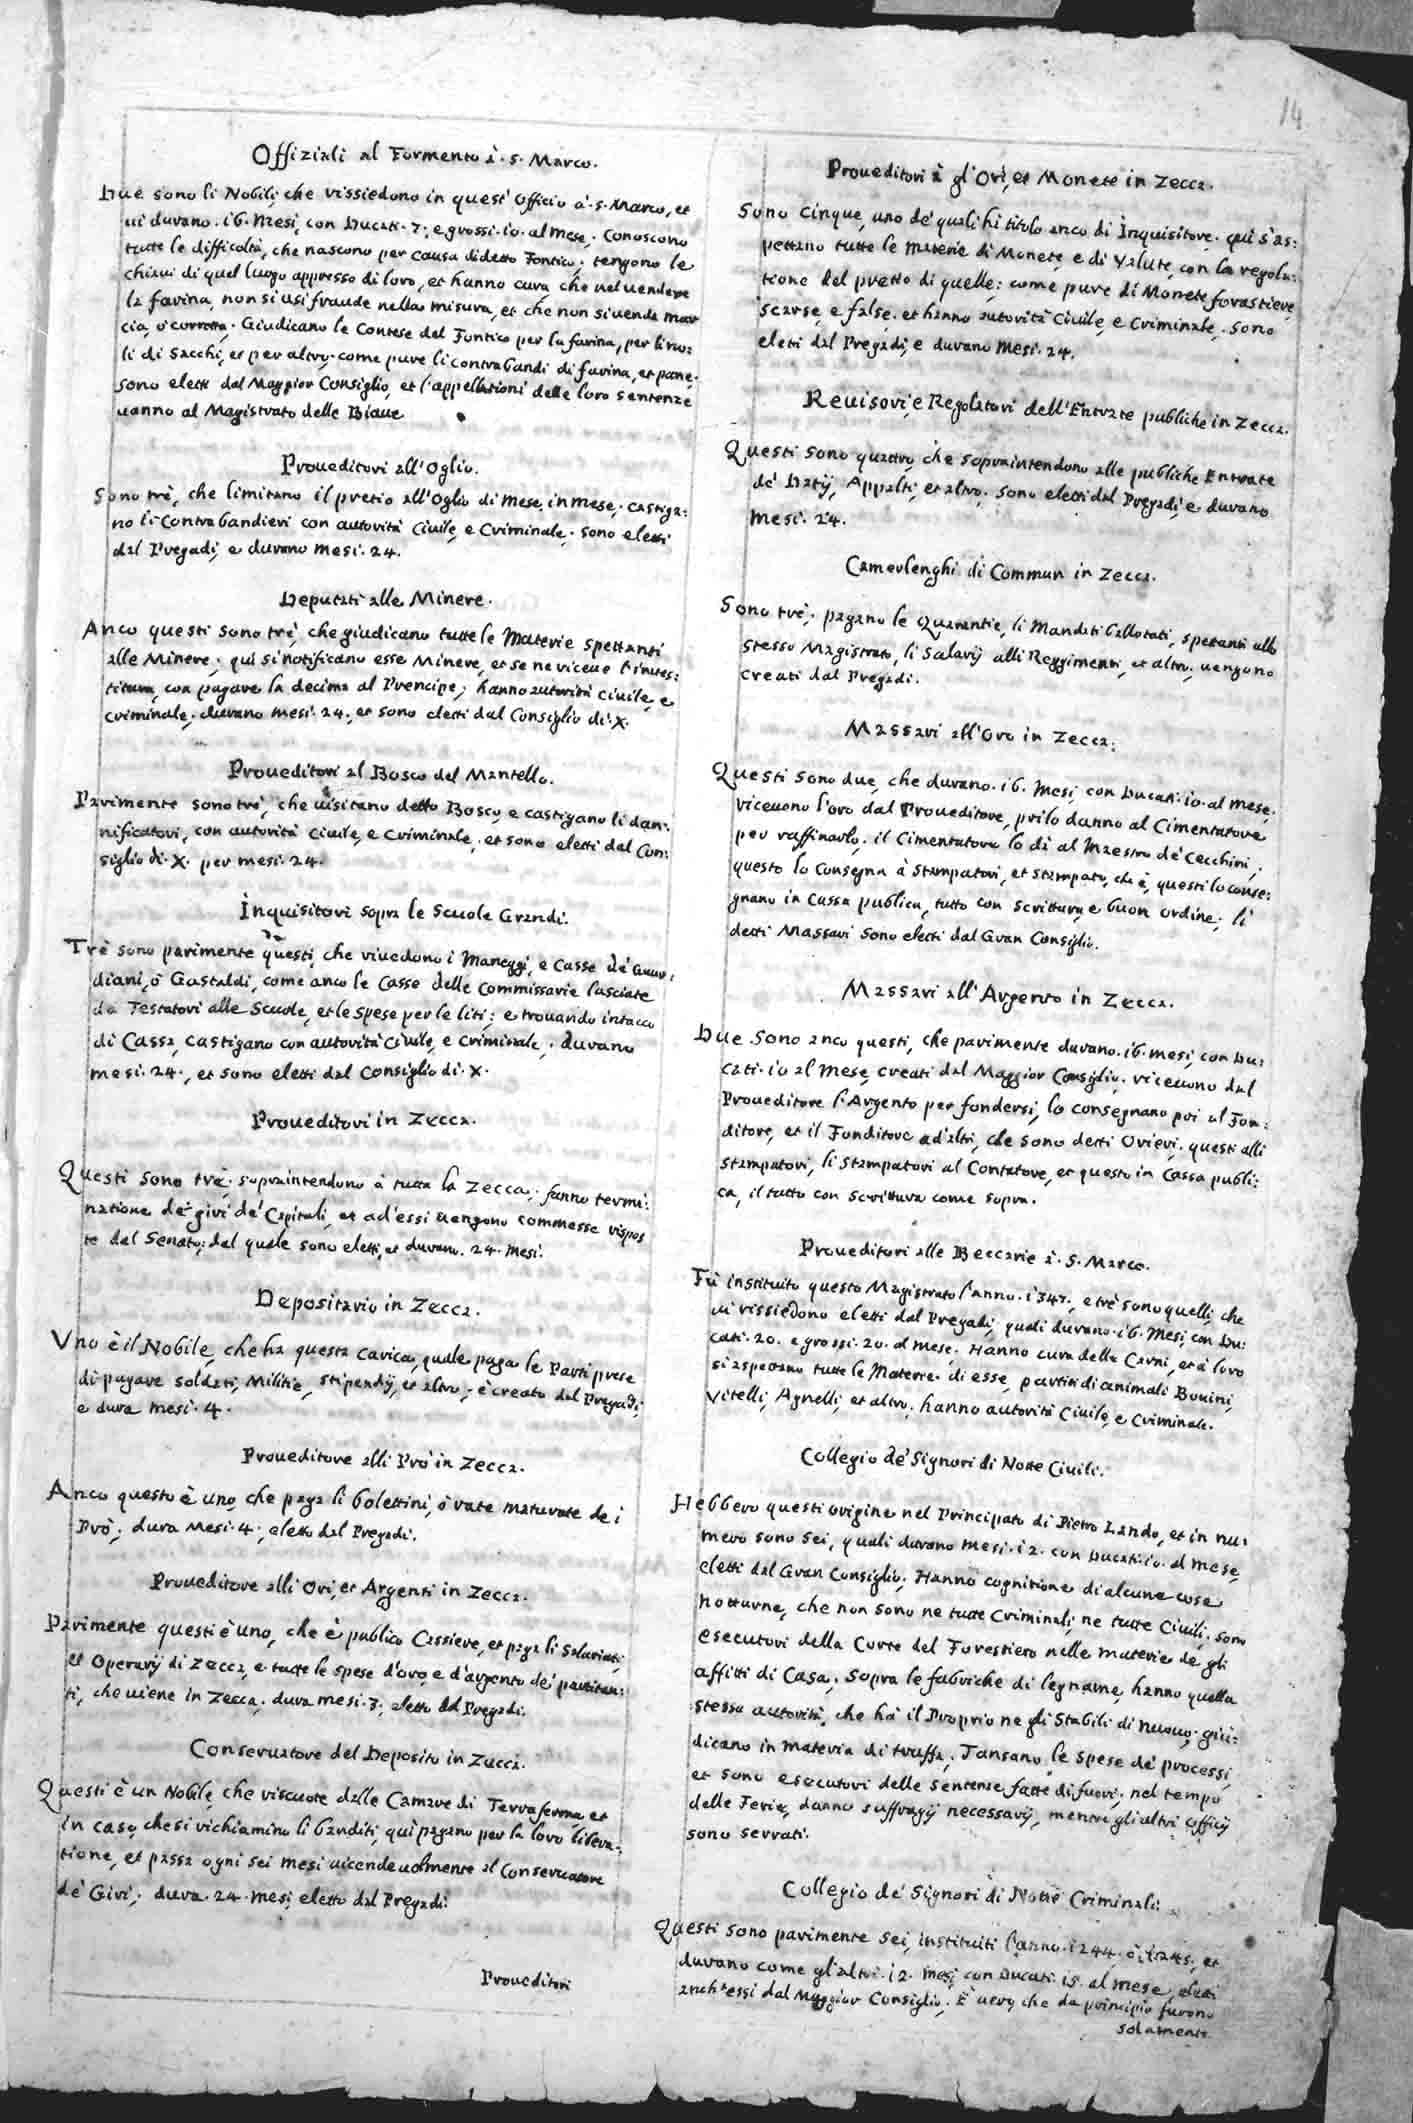 14
Offiziali al Formento à S. Marco.
Due sono li Nobili, che rissiedono in quest' Officio à S. Marco, et
ui durano 16. Mesi, con Ducati 7: e grossi 10. al mese. Conoscono
tutte le difficoltà, che nascono per causa di detto Fontico; tengono le
chiaui di quel luogo appresso di loro, et hanno cura che nel uendere
la farina, non si usi fraude nella misura, et che non si uenda mar
cia, ò corrotta. Giudicano le Contese del Fontico per la farina, per li no:
li di Sacchi, et per altro; come pure li contrabandi di farina, et pane.
sono eletti dal Maggior Consiglio, et l'appellationi delle loro sentenze
uanno al Magistrato delle Biaue
Proueditori all'Oglio.
Sono trè, che limitano il pretio all'Oglio di Mese, in mese; castiga:
no li Contrabandieri con autorità Ciuile, e Criminale. sono eletti
dal Pregadi, e durano mesi. 24.
Deputati alle Minere.
Anco questi sono trè, che giudicano tutte le Materie spettanti
alle Minere; quì si notificano esse Minere, et se ne riceue l'inues:
titura, con pagare la decima al Prencipe; hanno autorità Ciuile, e
criminale; durano mesi. 24., et sono eletti dal Consiglio di. X.
Proueditori al Bosco del Mantello.
Parimente sono trè, che uisitano detto Bosco, e castigano li dan:
nificatori, con autorità Ciuile, e Criminale, et sono eletti dal Con:
siglio di. X. per mesi. 24.
Inquisitori sopra le Scuole Grandi.
Trè sono parimente questi, che riuedono i Maneggi, e Casse de' Guar:
diani, ò Gastaldi, come anco le Casse delle Commissarie lasciate
da Testatori alle Scuole, et le spese per le liti; e trouando intacco
di Cassa, castigano con autorità Ciuile, e Criminale. durano
mesi. 24., et sono eletti dal Consiglio di. X.
Proueditori in Zecca.
Questi sono trè. sopraintendono à tutta la Zecca; fanno termi:
natione de' giri de' Capitali, et ad'essi uengono commesse rispos
te dal Senato; dal quale sono eletti, et durano. 24. Mesi.
Depositario in Zecca.
Vno è il Nobile, che ha questa carica, quale paga le Parti prese
di pagare soldati, Militie, stipendij, et altro; è creato dal Pregadi,
e dura mesi. 4.
Proueditore alli Prò in Zecca.
Anco questo è uno, che paga li bolettini, ò rate maturate de i
Prò; dura Mesi. 4., eletto dal Pregadi.
Proueditore alli Ori, et Argenti in Zecca.
Parimente questi è uno, che è publico Cassiere, et paga li Salariati,
et Operarij di Zecca, e tutte le spese d'oro, e d'argento de' partitan:
ti, che uiene in Zecca, dura mesi. 3. eletto dal Pregadi.
Conseruatore del Deposito in Zecca.
Questi è un Nobile, che riscuote dalle Camere di Terraferma, et
in caso, che si richiamino li banditi, qui pagano per la loro libera:
tione, et passa ogni sei mesi uicendeuolmente al Conseruatore
de' Giri; dura. 24. mesi, eletto dal Pregadi.
Proueditori
Proueditori à gl'Ori, et Monete in Zecca.
Sono cinque, uno de' quali hà titolo anco di Inquisitore. quì s'as:
pettano tutte le materie di Monete, e di Valute, con la regola:
tione del pretio di quelle; come pure di Monete forastiere,
scarse, e false. et hanno autorità Ciuile, e Criminale. sono
eletti dal Pregadi, e durano Mesi. 24.
Reuisori, e Regolatori dell'Entrate publiche in Zecca.
Questi sono quattro, che sopraintendono alle publiche Entrate
de' Datij, Appalti, et altro. sono eletti dal Pregadi, e durano
mesi. 24.
Camerlenghi di Commun in Zecca.
Sono trè; pagano le Quarantie, li Mandati ballotati, spetanti allo
stesso Magistrato, li Salarij alli Reggimenti, et altro; uengono
creati dal Pregadi.
Massari all'Oro in Zecca.
Questi sono due, che durano. 16. Mesi, con Ducati. 10. al mese.
riceuono l'oro dal Proueditore, poi lo danno al Cimentatore
per raffinarlo; il Cimentatore lo dà al Maestro de' Cecchini;
questo lo consegna à Stampatori, et stampato, che è, questi lo conse:
gnano in Cassa publica, tutto con scrittura, e buon ordine; li
detti Massari sono eletti dal Gran Consiglio.
Massari all'Argento in Zecca.
Due sono anco questi, che parimente durano. 16. mesi, con Du:
cati. 10 al mese, creati dal Maggior Consiglio. riceuono dal
Proueditore l'Argento per fondersi, lo consegnano poi al Fon:
ditore, et il Fonditore ad'altri, che sono detti Orieri, questi alli
stampatori, li stampatori al Contatore, et questo in Cassa publi:
ca, il tutto con scrittura come sopra.
Proueditori alle Beccarie à. S. Marco.
Fù instituito questo Magistrato l'anno. 1347., e trè sono quelli, che
ui rissiedono eletti dal Pregadi, quali durano. 16. Mesi, con Du:
cati. 20. e grossi. 20. al mese. Hanno cura delle Carni, et à loro
si aspettano tutte le Materie di esse, partiti di animali Bouini,
Vitelli, Agnelli, et altro. hanno autorità Ciuile, e Criminale.
Collegio de' Signori di Notte Ciuili.
Hebbero questi origine nel Principato di Pietro Lando, et in nu:
mero sono sei, quali durano mesi. 12. con Ducati. 10. al mese,
eletti dal Gran Consiglio. Hanno cognitione di alcune cose
notturne, che non sono ne tutte Criminali, ne tutte Ciuili. sono
esecutori della Corte del Forestiero nelle materie de gli
affitti di Casa. Sopra le fabriche di legname, hanno quella
stessa autorità, che hà il Proprio ne gli Stabili di nuouo. giu:
dicano in materia di truffa. Tansano le spese de' processi,
et sono esecutori delle sentenze fatte di fuori. nel tempo
delle Ferie, danno suffragij necessarij, mentre gli altri officij
sono serrati.
Collegio de' Signori di Notte Criminali.
Questi sono parimente sei, instituiti l'anno. 1244. ò, et
durano come gl'altri. 12. mesi, con Ducati. 15. al mese, eletti
anch'essi dal Maggior Consiglio. È uero, che da principio furono
solamente